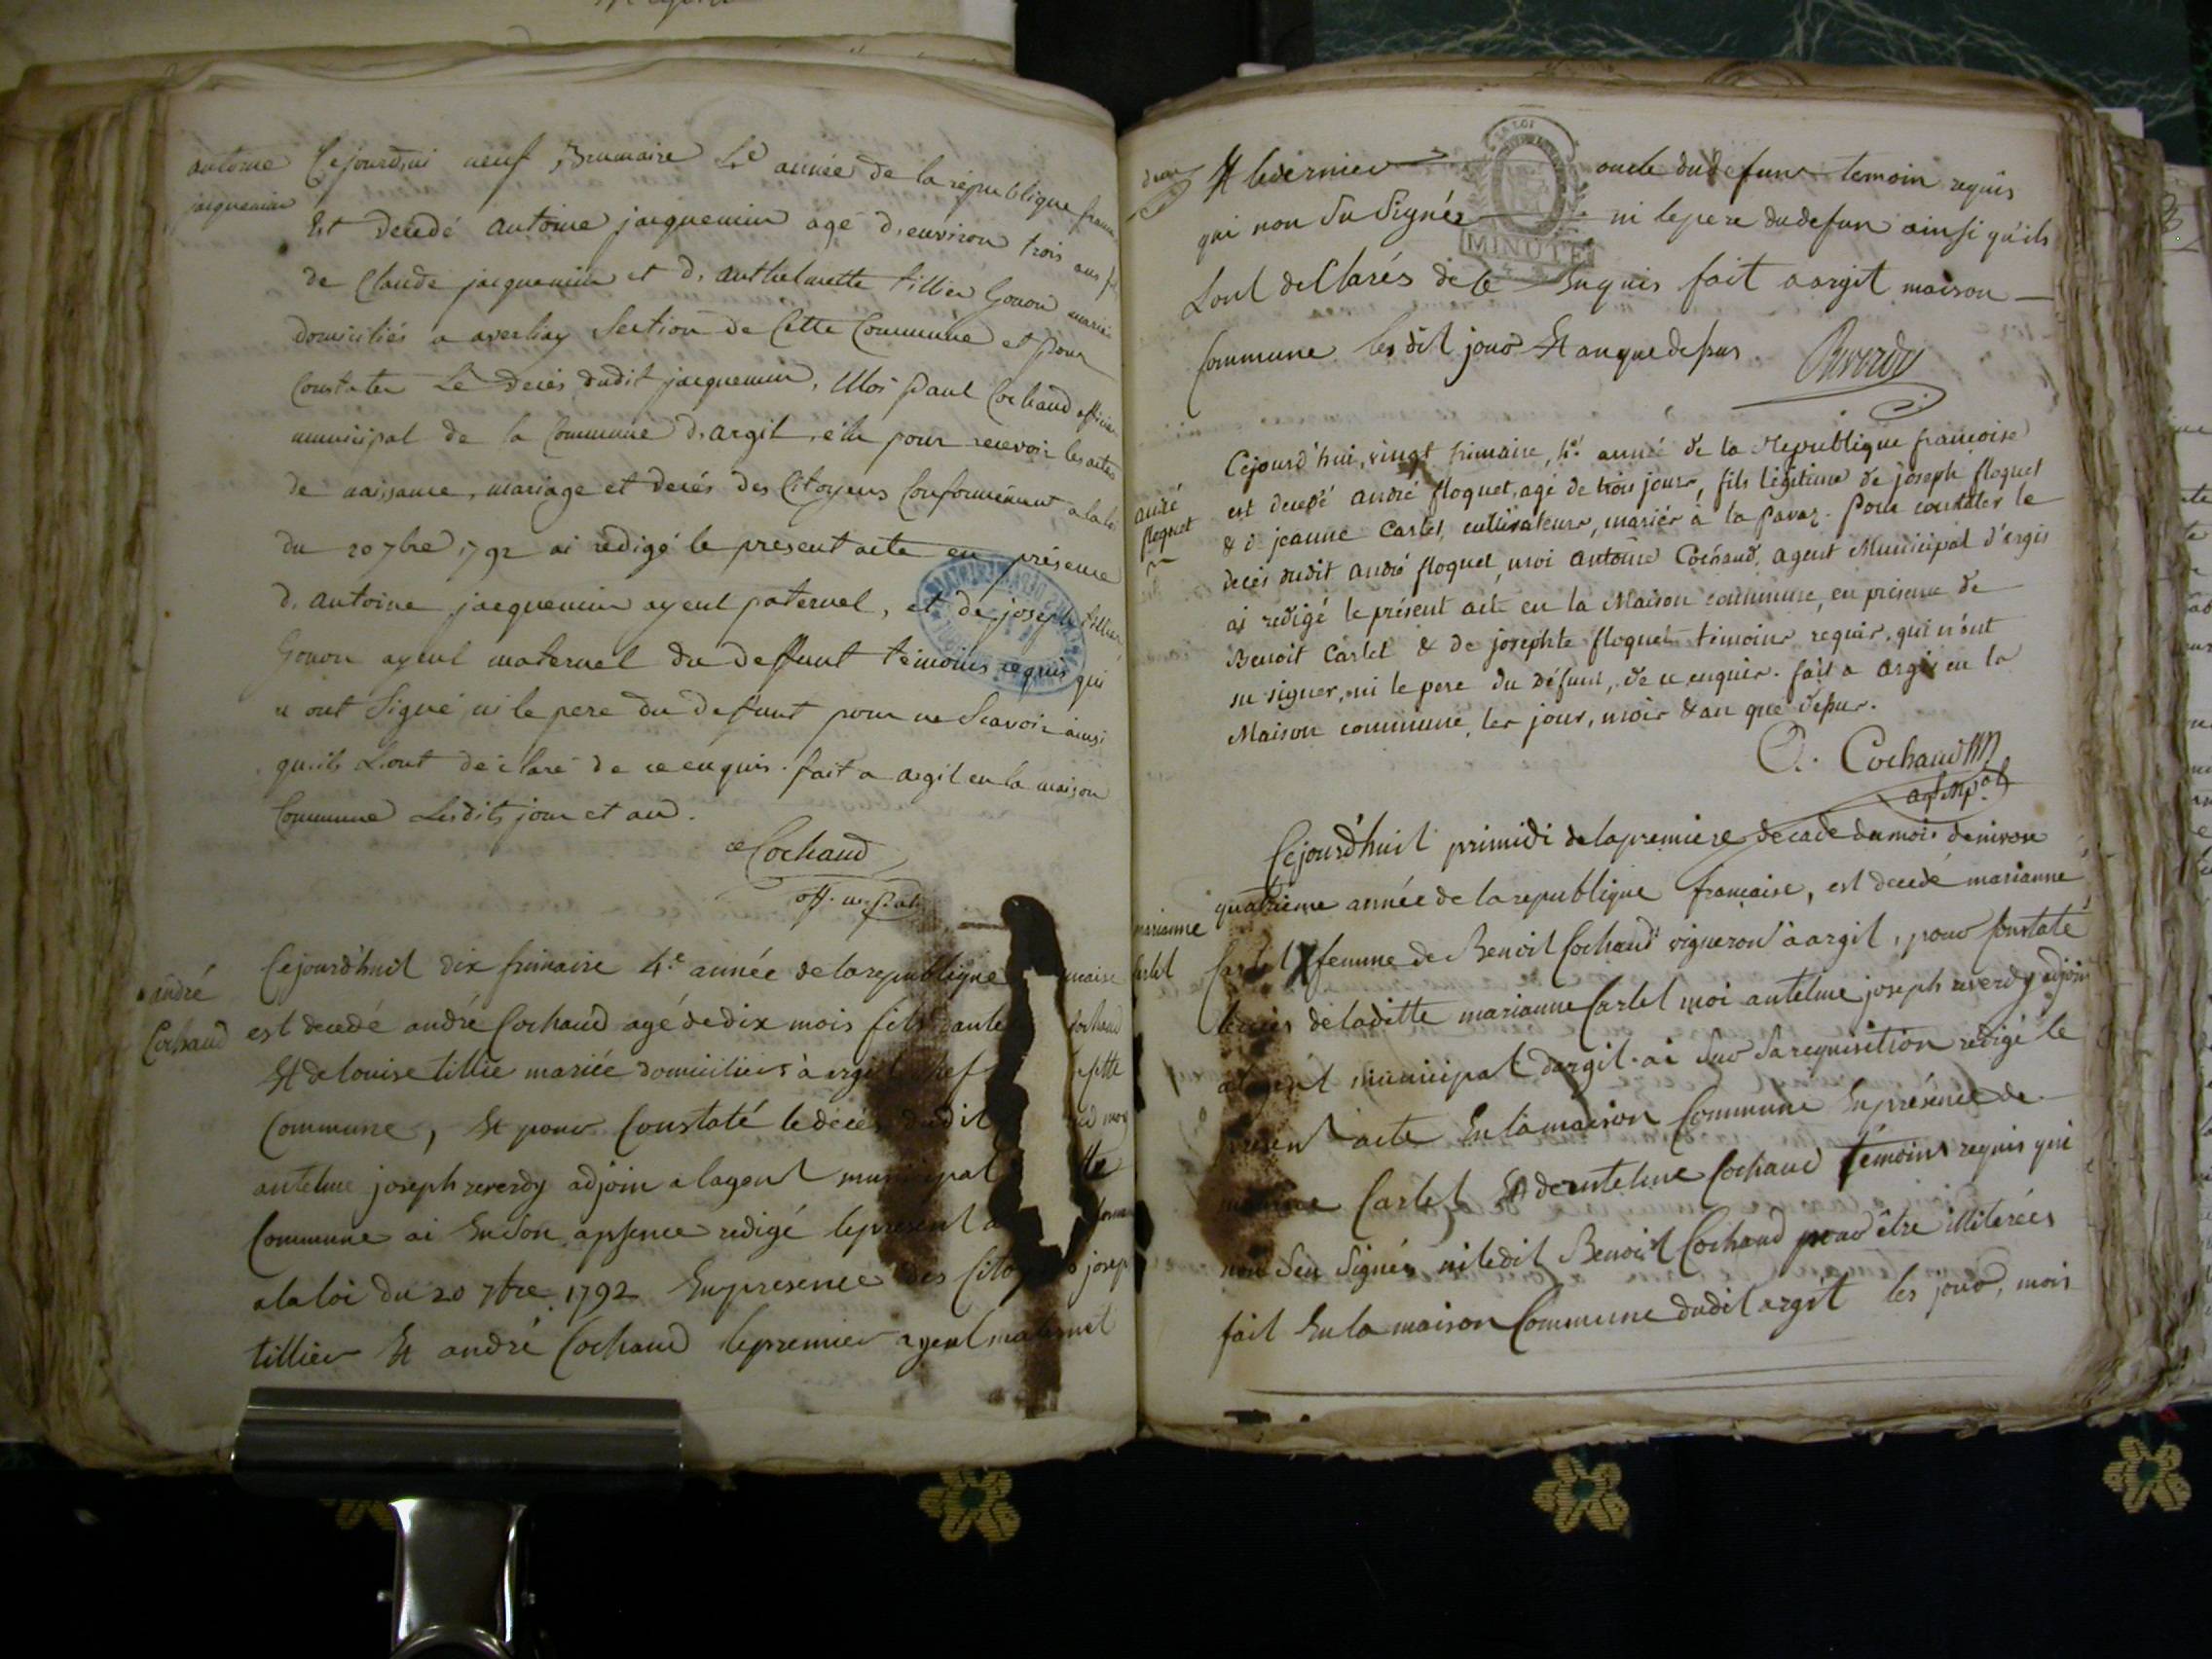 antoine
jacquemin
Cejourd'ui neuf Brumaire 4e année de la république
Est decedé antoine jacquemin agé d'environ trois ans
de Claude jacquemin et d. anthelmette tillier Gonon marié
domiciliés a averliay Section de Cette Commune et pour
Constater Le decés dudit jacquemin, Moi Paul Cochaud officier
municipal de la Commune d'argil, élu pour recevoir les actes
de naissance, mariage et decés des Citoyens Conformément a la loi
du 20 7bre 1792 ai redigé le present acte en présence
d. antoine jacquemin ayeul paternel, et de joseph tillier
Gonon ayeul maternel du deffunt témoins requis qui
n ont Signé, ni le pere du defunt pour ne Scavoir ainsi
qu'ils L'ont déclaré de ce enquis. fait a argil en la maison
Commune Lesdits jour et an.
Cochaud
off. mpal
andré
Cochaud
Cejourd'huil dix frimaire 4.e année de la republique
est decedé andré Cochaud agé de dix mois fils cochaud
Et de louise tillie mariée domiciliers à argil chef
Commune, Et pour Constaté le decés dudit moy
antelme joseph reverdy adjoin a lagent municipal
Commune ai En son apsence redigé le présent
a la loi du 20 7bre 1792 En presence des josep
tillier Et andré Cochaud le premier ayeul maternel
Et le dernier oncle du defunt temoin requis
qui non Su Signés ni le pere du defun ainsi qu'ils
Lont deClarés de Ce Enquis fait a argit maison
Commune les dit jour Et an que de sus
Reverdy
LA LOI
MINUTE
andré
floquet
Cejourd'hui, vingt frimaire, 4e année de la République francoise
est decedé andré floquet, agé de trois jours, fils légitime de joseph floquet
& d. jeanne Carlet, cultivateurs, mariés à la Pavaz. Pour constater le
decès dudit andré floquet, moi antoine Cochaud, agent Municipal d'argis
ai redigé le présent acte en la Maison commune, en présence de
Benoit Carlet & de josephte floquet témoins requis, qui n'ont
su signer, ni le pere du Défunt, de ce enquis. fait a argis en la
Maison commune, les jour, mois & an que dessus.
Cochaud
ag. mpal
marianne
Carlet
Cejourd'huil primidi de la premiere decade du mois de nivose
quatrieme année de la republique francaise, est decedé marianne
Carlet femme de Benoit Cochaud vigneron à argil, pour Constaté
le decès de laditte marianne Carlet moi antelme joseph reverdy adjoin
a lagent municipal dargil ai Sur Sa requisition redigé le
present acte En la maison Commune En présence de
Carlet Et dantelme Cochaud témoins requis qui
non Seu Signés ni ledit Benoit Cochaud pour être illiterées
fait En la maison Commune dudit argit les jour, mois